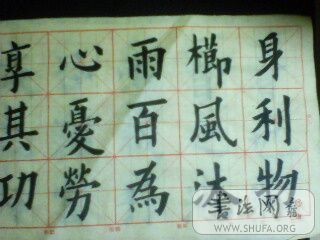 身利物
櫛風沐
雨百為
心憂勞
享其功
書法网
WWW.SHUFA.ORG